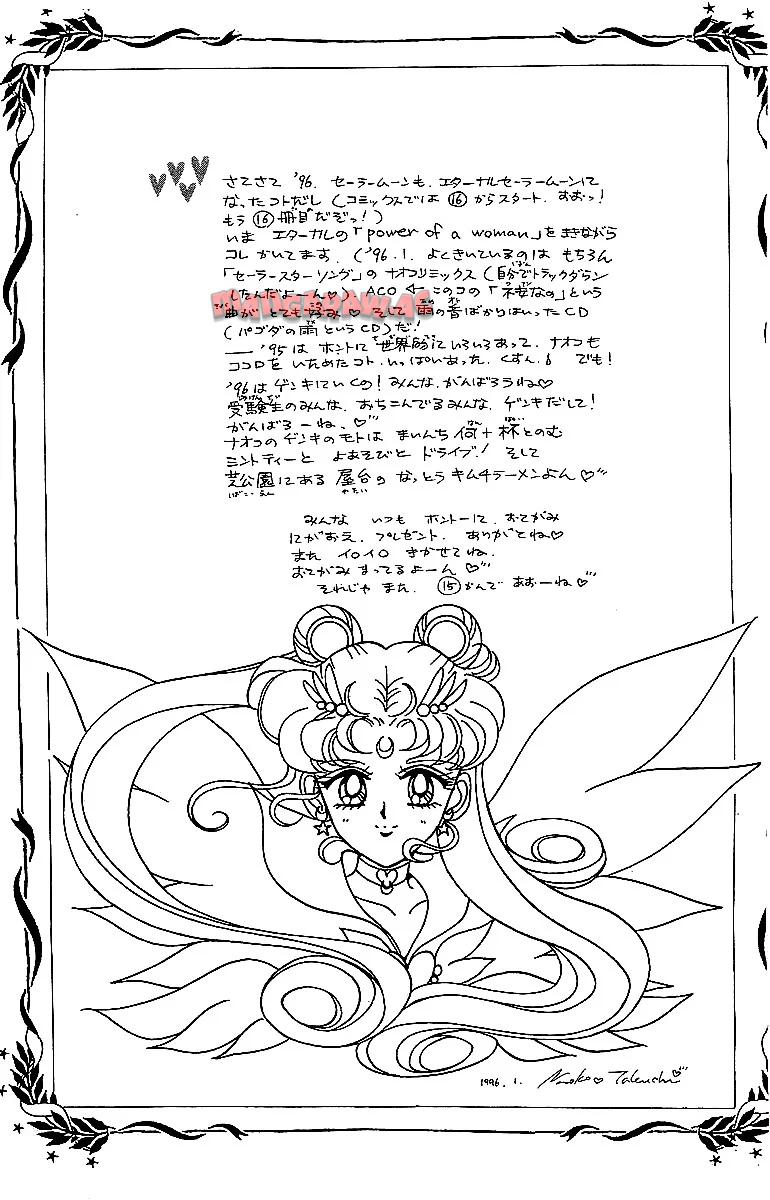 さてさて '96. セーラームーンも. エターナルセーラームーンに
なったコトだし (コミックスでは ⑯ からスタート. おおっ!
もう ⑯ 冊目だぞっ!)
いま エターナルの「power of a woman」をききながら
コレ かいてます. ('96.1. よくきいているのは もちろん
「セーラースターソング」の ナオコリミックス (自分でトラックダウン
したんだよーん♡) ACO ← このコの「不安なの」という
曲が とても好き ♡ そして 雨の音ばかりはいった CD
(パゴダの雨 という CD) だ!
—— '95は ホントに 世界的に いろいろあって. ナオコも
ココロを いためたコト. いっぱいあった. くすん. でも!
'96は ゲンキにいくの! みんな. がんばろうね♡
受験生のみんな. おちこんでるみんな. ゲンキだして!
がんばろーね. ♡
ナオコの ゲンキのモトは まいんち 何十杯とのむ
ミントティーと よあそびと ドライブ! そして
芝公園にある 屋台の なっとうキムチラーメンよん ♡
みんな いつも ホントーに. おてがみ
にがおえ. プレゼント. ありがとね♡
また イロイロ きかせてね.
おてがみ まってるよーん ♡
それじゃ また. ⑮ かんで あおーね ♡
1996.1. Naoko♡Takeuchi♡